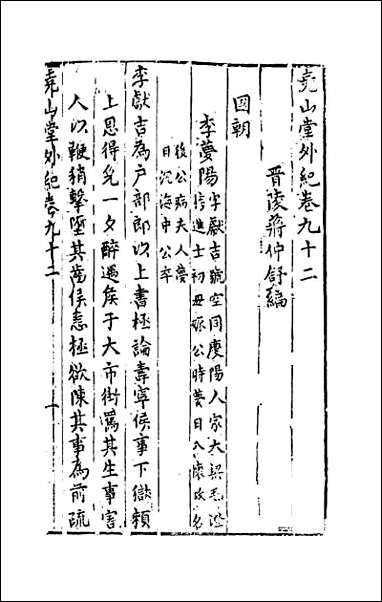 堯山堂外紀卷九十二
晉陵蔣仲舒編
國朝
李夢陽
字獻吉號空同慶陽人家大梁弘治
進士初母娠公時夢日入懷故名
後公病夫人夢
日沉海中公卒
李獻吉為户部郎以上書極論壽寧侯事下獄頼
上恩得免一夕醉遇矦于大市街罵其生事害
人以鞭稍擊墮其齒侯恚極欲陳其事為前疏
堯山堂外紀卷九十二
一